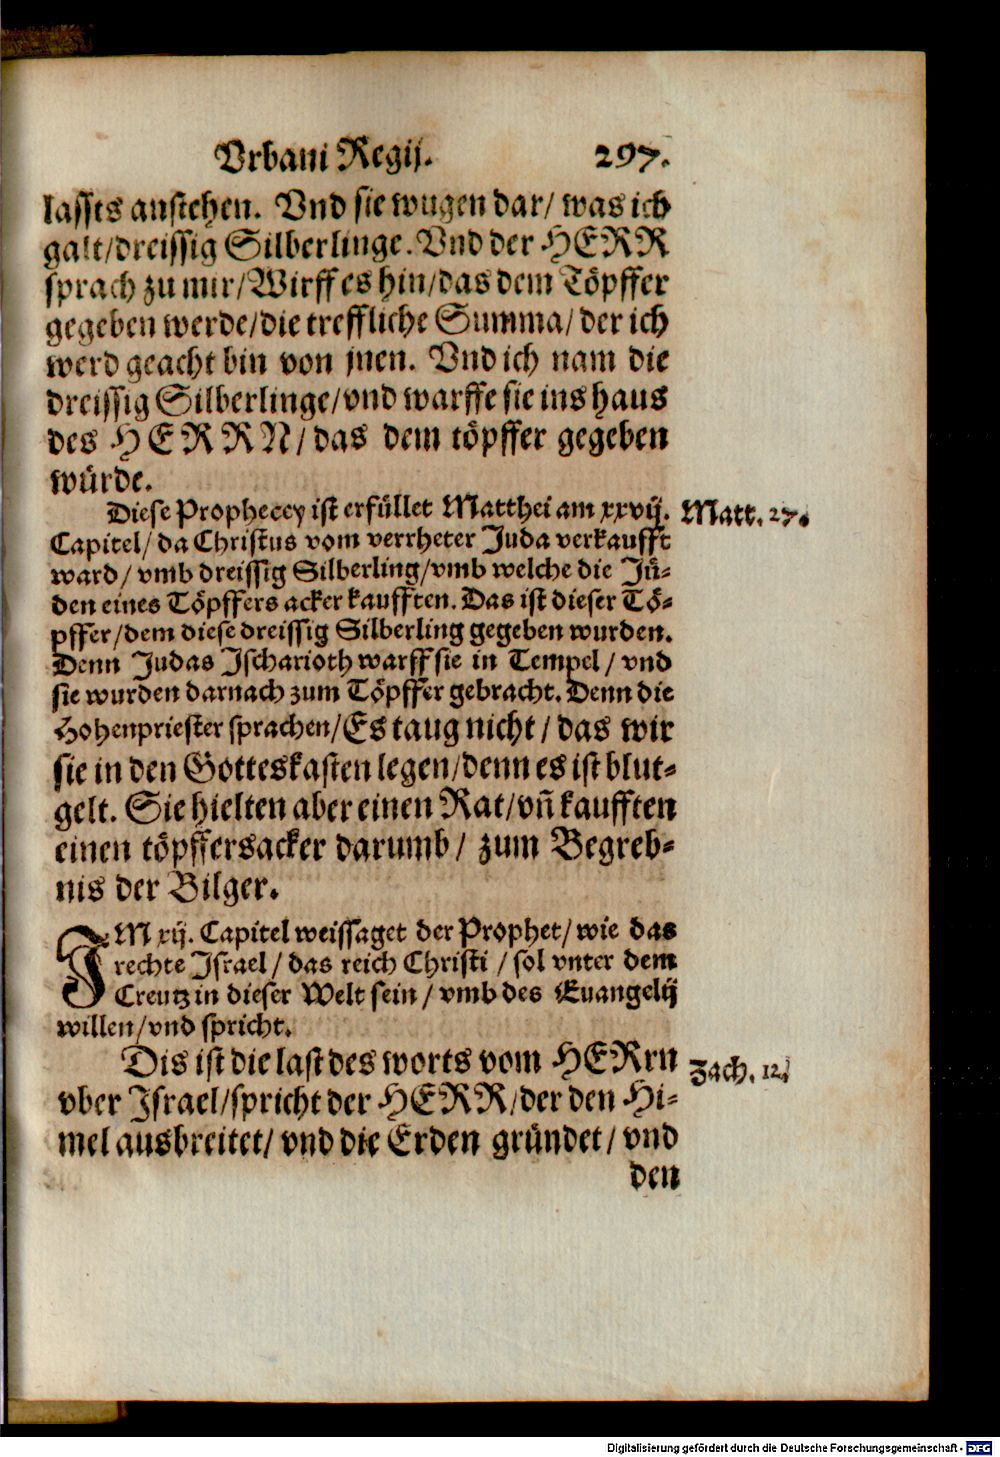 Vrbani Regij. 297.
lassts anstehen. Vnd sie wugen dar/ was ich
galt/dreissig Silberlinge. Vnd der HERR
sprach zu mir/Wirff es hin/das dem Töpffer
gegeben werde/die treffliche Summa/ der ich
werd geacht bin von jnen. Vnd ich nam die
dreissig Silberlinge/vnd warffe sie ins haus
des HERRN/das dem töpffer gegeben
würde.
Diese Prophecey ist erfüllet Matthei am xxvij. Matt. 27.
Capitel/ da Christus vom verrheter Juda verkaufft
ward/ vmb dreissig Silberling/vmb welche die Jü-
den eines Töpffers acker kaufften. Das ist dieser Tö-
pffer/dem diese dreissig Silberling gegeben wurden.
Denn Judas Jscharioth warff sie in Tempel/ vnd
sie wurden darnach zum Töpffer gebracht. Denn die
Hohenpriester sprachen/Es taug nicht/ das wir
sie in den Gotteskasten legen/denn es ist blut-
gelt. Sie hielten aber einen Rat/vñ kaufften
einen töpffersacker darumb/ zum Begreb-
nis der Bilger.
JM xij. Capitel weissaget der Prophet/ wie das
rechte Jsrael/ das reich Christi/ sol vnter dem
Creutz in dieser Welt sein/ vmb des Euangelij
willen/vnd spricht.
Dis ist die last des worts vom HERrn Zach. 12.
vber Jsrael/spricht der HERR/der den Hi-
mel ausbreitet/ vnd die Erden gründet/ vnd
den
Digitalisierung gefördert durch die Deutsche Forschungsgemeinschaft - DFG